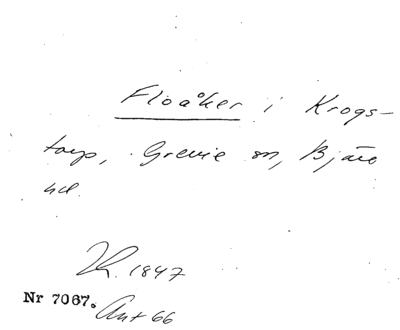 Floåker i Krogs-
torp, Grevie sn, Bjäre
hd.
1847
Nr 7067. Ant 66